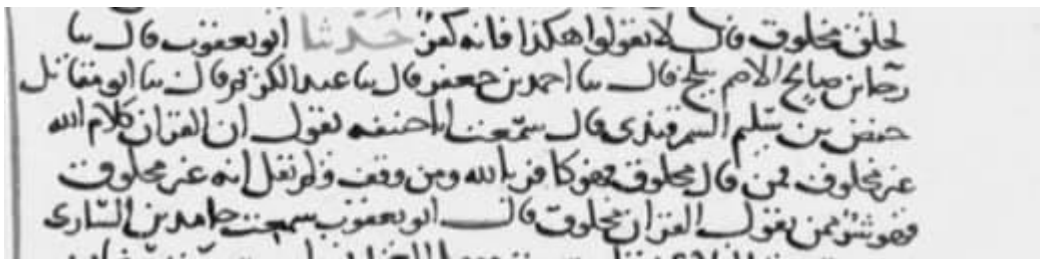 لخلق مخلوق قال لا تقولوا هكذا فانه كفر حدثنا ابو يعقوب قال سا
رجا بن صالح الامر ببلخ قال سا احمد بن جعفر قال سا عبد الكريم قال سا ابو مقاتل
حفص بن سليم السمرقندى قال سمعت ابا حنيفه يقول ان القران كلام الله
غير مخلوق فمن قال مخلوق فهو كافر بالله ومن وقف ولم يقل انه غير مخلوق
فهو شر ممن يقول القران مخلوق قال ابو يعقوب سمعت حامد بن السارى